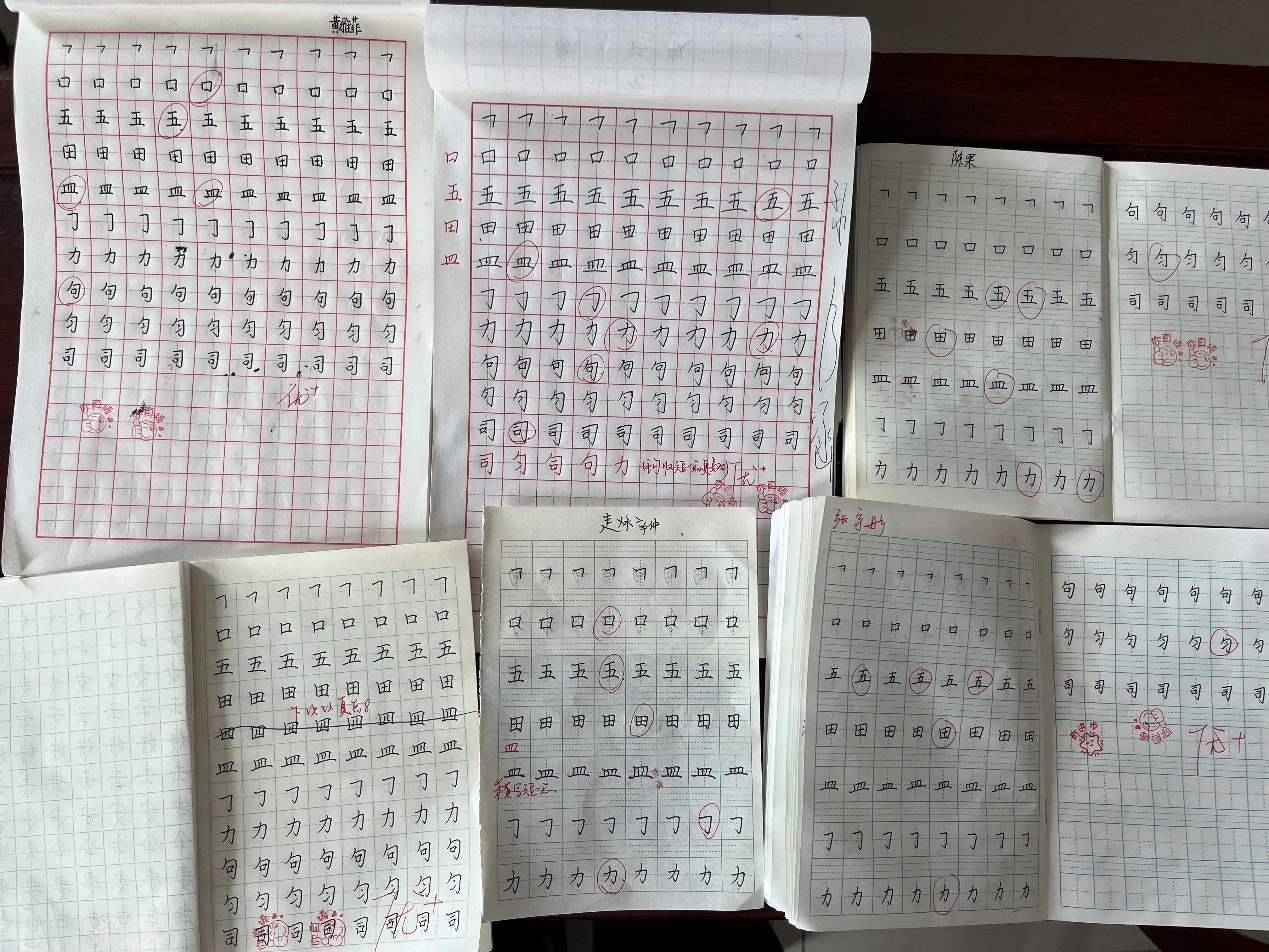 黄雅菲
㇕ ㇕ ㇕ ㇕ ㇕ ㇕ ㇕ ㇕ ㇕ ㇕
口 口 口 口 口 口 口 口 口 口
五 五 五 五 五 五 五 五 五 五
田 田 田 田 田 田 田 田 田 田
皿 皿 皿 皿 皿 皿 皿 皿 皿 皿
㇆ ㇆ ㇆ ㇆ ㇆ ㇆ ㇆ ㇆ ㇆ ㇆
力 力 力 力 力 力 力 力 力
句 句 句 句 句 句 句 句 句 句
匀 匀 匀 匀 匀 匀 匀 匀 匀 匀
司 司 司 司 司 司 司 司 司 司
优+
你真棒 你真棒
㇕ ㇕ ㇕ ㇕ ㇕ ㇕ ㇕ ㇕ ㇕ ㇕
口 口 口 口 口 口 口 口 口 口 口
五 五 五 五 五 五 五 五 五 五 五
田 田 田 田 田 田 田 田 田 田 田
皿 皿 皿 皿 皿 皿 皿 皿 皿 皿 皿
㇆ ㇆ ㇆ ㇆ ㇆ ㇆ ㇆ ㇆ ㇆ ㇆
力 力 力 力 力 力 力 力 力 力
句 句 句 句 句 句 句 句 句 句
匀 匀 匀 匀 匀 匀 匀 匀 匀 匀
司 司 司 司 司 司 司 司 司 司
司 匀 司 句 力
优+
你真棒
陈果
㇕ ㇕ ㇕ ㇕ ㇕ ㇕ ㇕ ㇕
口 口 口 口 口 口 口 口
五 五 五 五 五 五 五 五
田 田 田 田 田 田 田 田
皿 皿 皿 皿 皿 皿 皿 皿
㇆ ㇆ ㇆ ㇆ ㇆ ㇆ ㇆ ㇆
力 力 力 力 力 力 力 力
句 句 句 句 句 句
匀 匀 匀 匀 匀 匀
司 司 司 司 司
你真棒 你真棒
㇕ ㇕ ㇕ ㇕ ㇕ ㇕ ㇕ ㇕
口 口 口 口 口 口 口 口
五 五 五 五 五 五 五 五
田 田 田 田 田 田 田 田
下次认真点
皿 皿 皿 皿 皿 皿 皿 皿
皿 皿 皿 皿 皿 皿 皿 皿
㇆ ㇆ ㇆ ㇆ ㇆ ㇆ ㇆ ㇆
力 力 力 力 力 力 力 力
句 句 句 句 句 句 句 句
匀 匀 匀 匀 匀 匀 匀 匀
司 司 司 司 司 司 司 司
优+
㇕ ㇕ ㇕ ㇕ ㇕ ㇕ ㇕ ㇕
口 口 口 口 口 口 口 口
五 五 五 五 五 五 五 五
田 田 田 田 田 田 田 田
皿
皿 皿 皿 皿 皿 皿 皿 皿
㇆ ㇆ ㇆ ㇆ ㇆ ㇆ ㇆ ㇆
力 力 力 力 力 力 力 力
张宇彤
㇕ ㇕ ㇕ ㇕ ㇕ ㇕ ㇕ ㇕
口 口 口 口 口 口 口 口
五 五 五 五 五 五 五 五
田 田 田 田 田 田 田 田
皿 皿 皿 皿 皿 皿 皿 皿
㇆ ㇆ ㇆ ㇆ ㇆ ㇆ ㇆ ㇆
力 力 力 力 力 力 力 力
句 句 句 句 句 句 句
匀 匀 匀 匀 匀 匀 匀
司 司 司 司 司 司 司
有进步 你真棒
优+